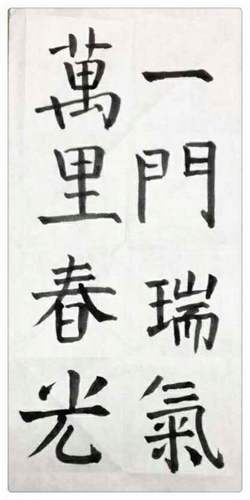 一門瑞氣
萬里春光